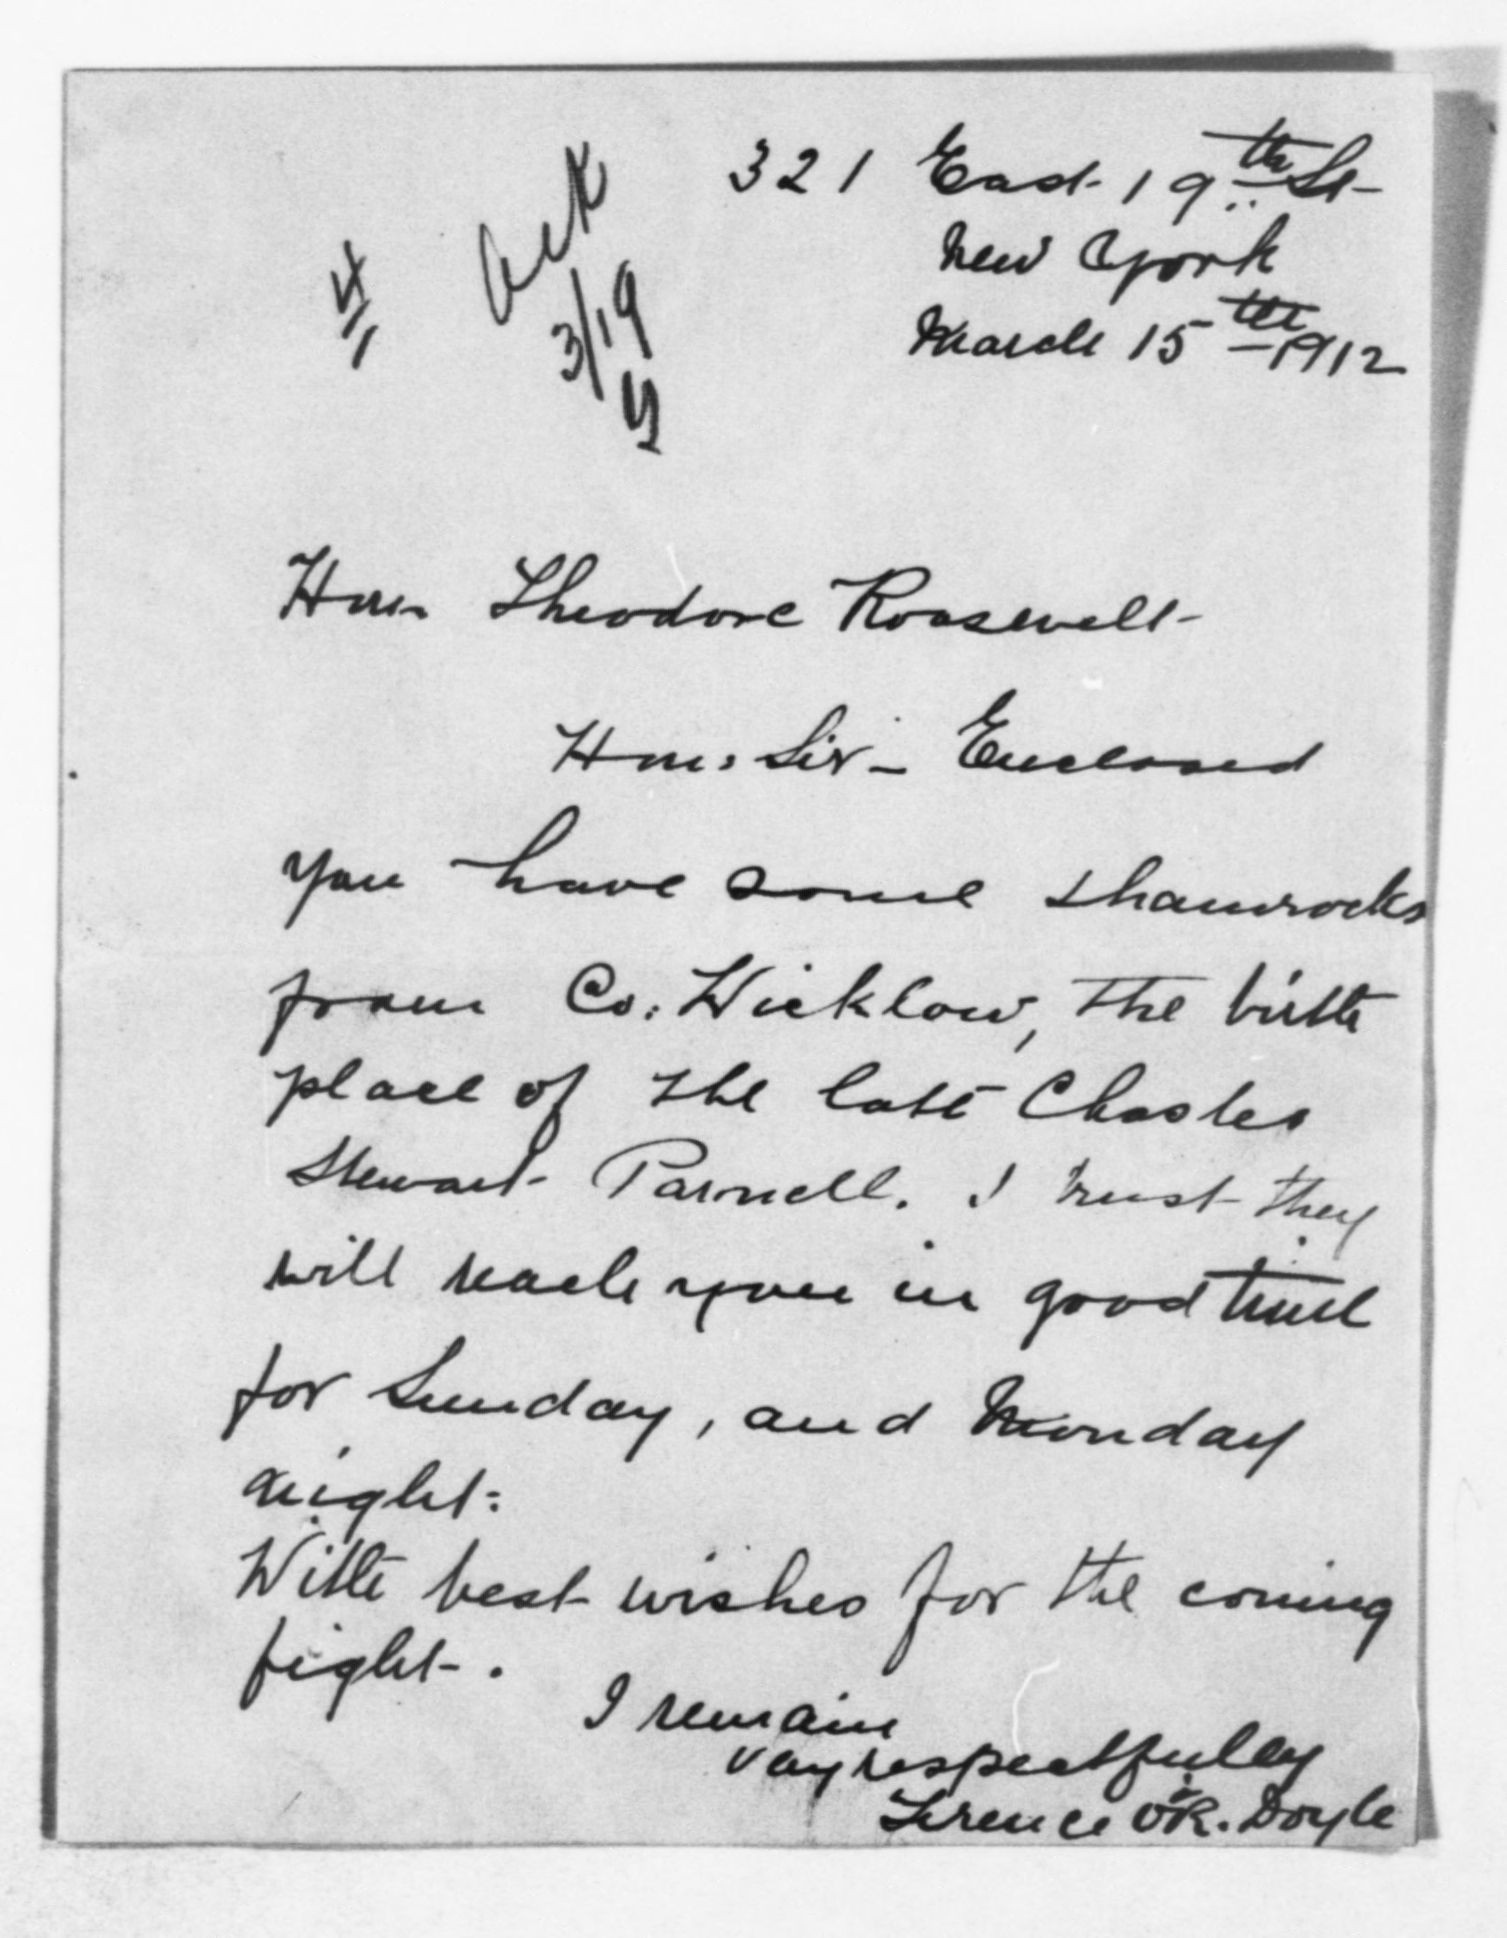 321 East 19th St
New York
March 15th 1912
Ack
3/19
Hon. Theodore Roosevelt
Hon: Sir - Enclosed
you have some shamrocks
from Co: Wicklow, the birth
place of the late Charles
Stewart Parnell. I trust they
will reach you in good time
for Sunday, and Monday
night:
With best wishes for the coming
fight.
I remain
very respectfully
Terence O'R. Doyle